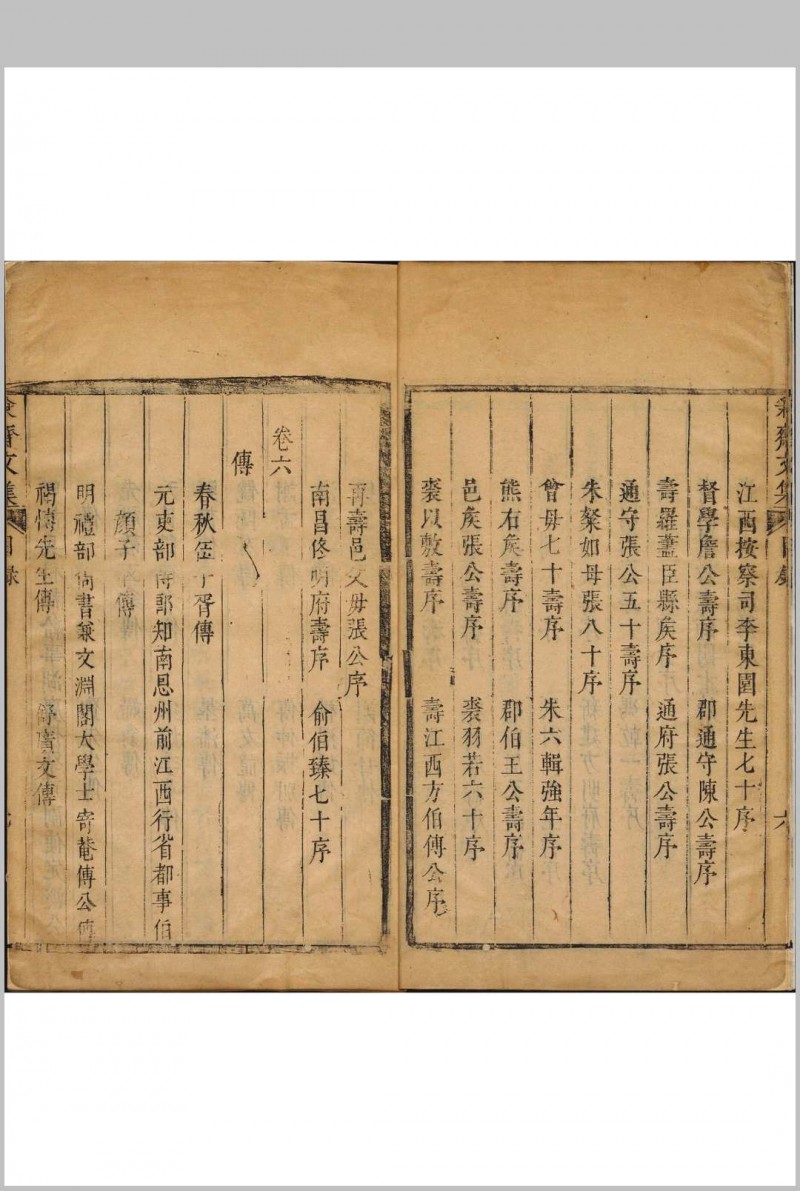 齋文集 目錄 六
江西按察司李東園先生七十序
督學詹公壽序 郡通守陳公壽序
壽羅藎臣縣矦序 通府張公壽序
通守張公五十壽序
朱粲如母張八十序
曾母七十壽序 朱六輯強年序
熊右矦壽序 郡伯王公壽序
邑矦張公壽序 裘羽若六十序
裘以敷壽序 壽江西方伯傅公序
再壽邑父母張公序
南昌佟明府壽序 俞伯臻七十序
卷六
傳
春秋伍子胥傳
元吏部侍郎知南恩州前江西行省都事伯
顏子傳
明禮部尚書兼文淵閣大學士寄菴傅公傳
先生傳 舒實文傳
齋文集 目錄